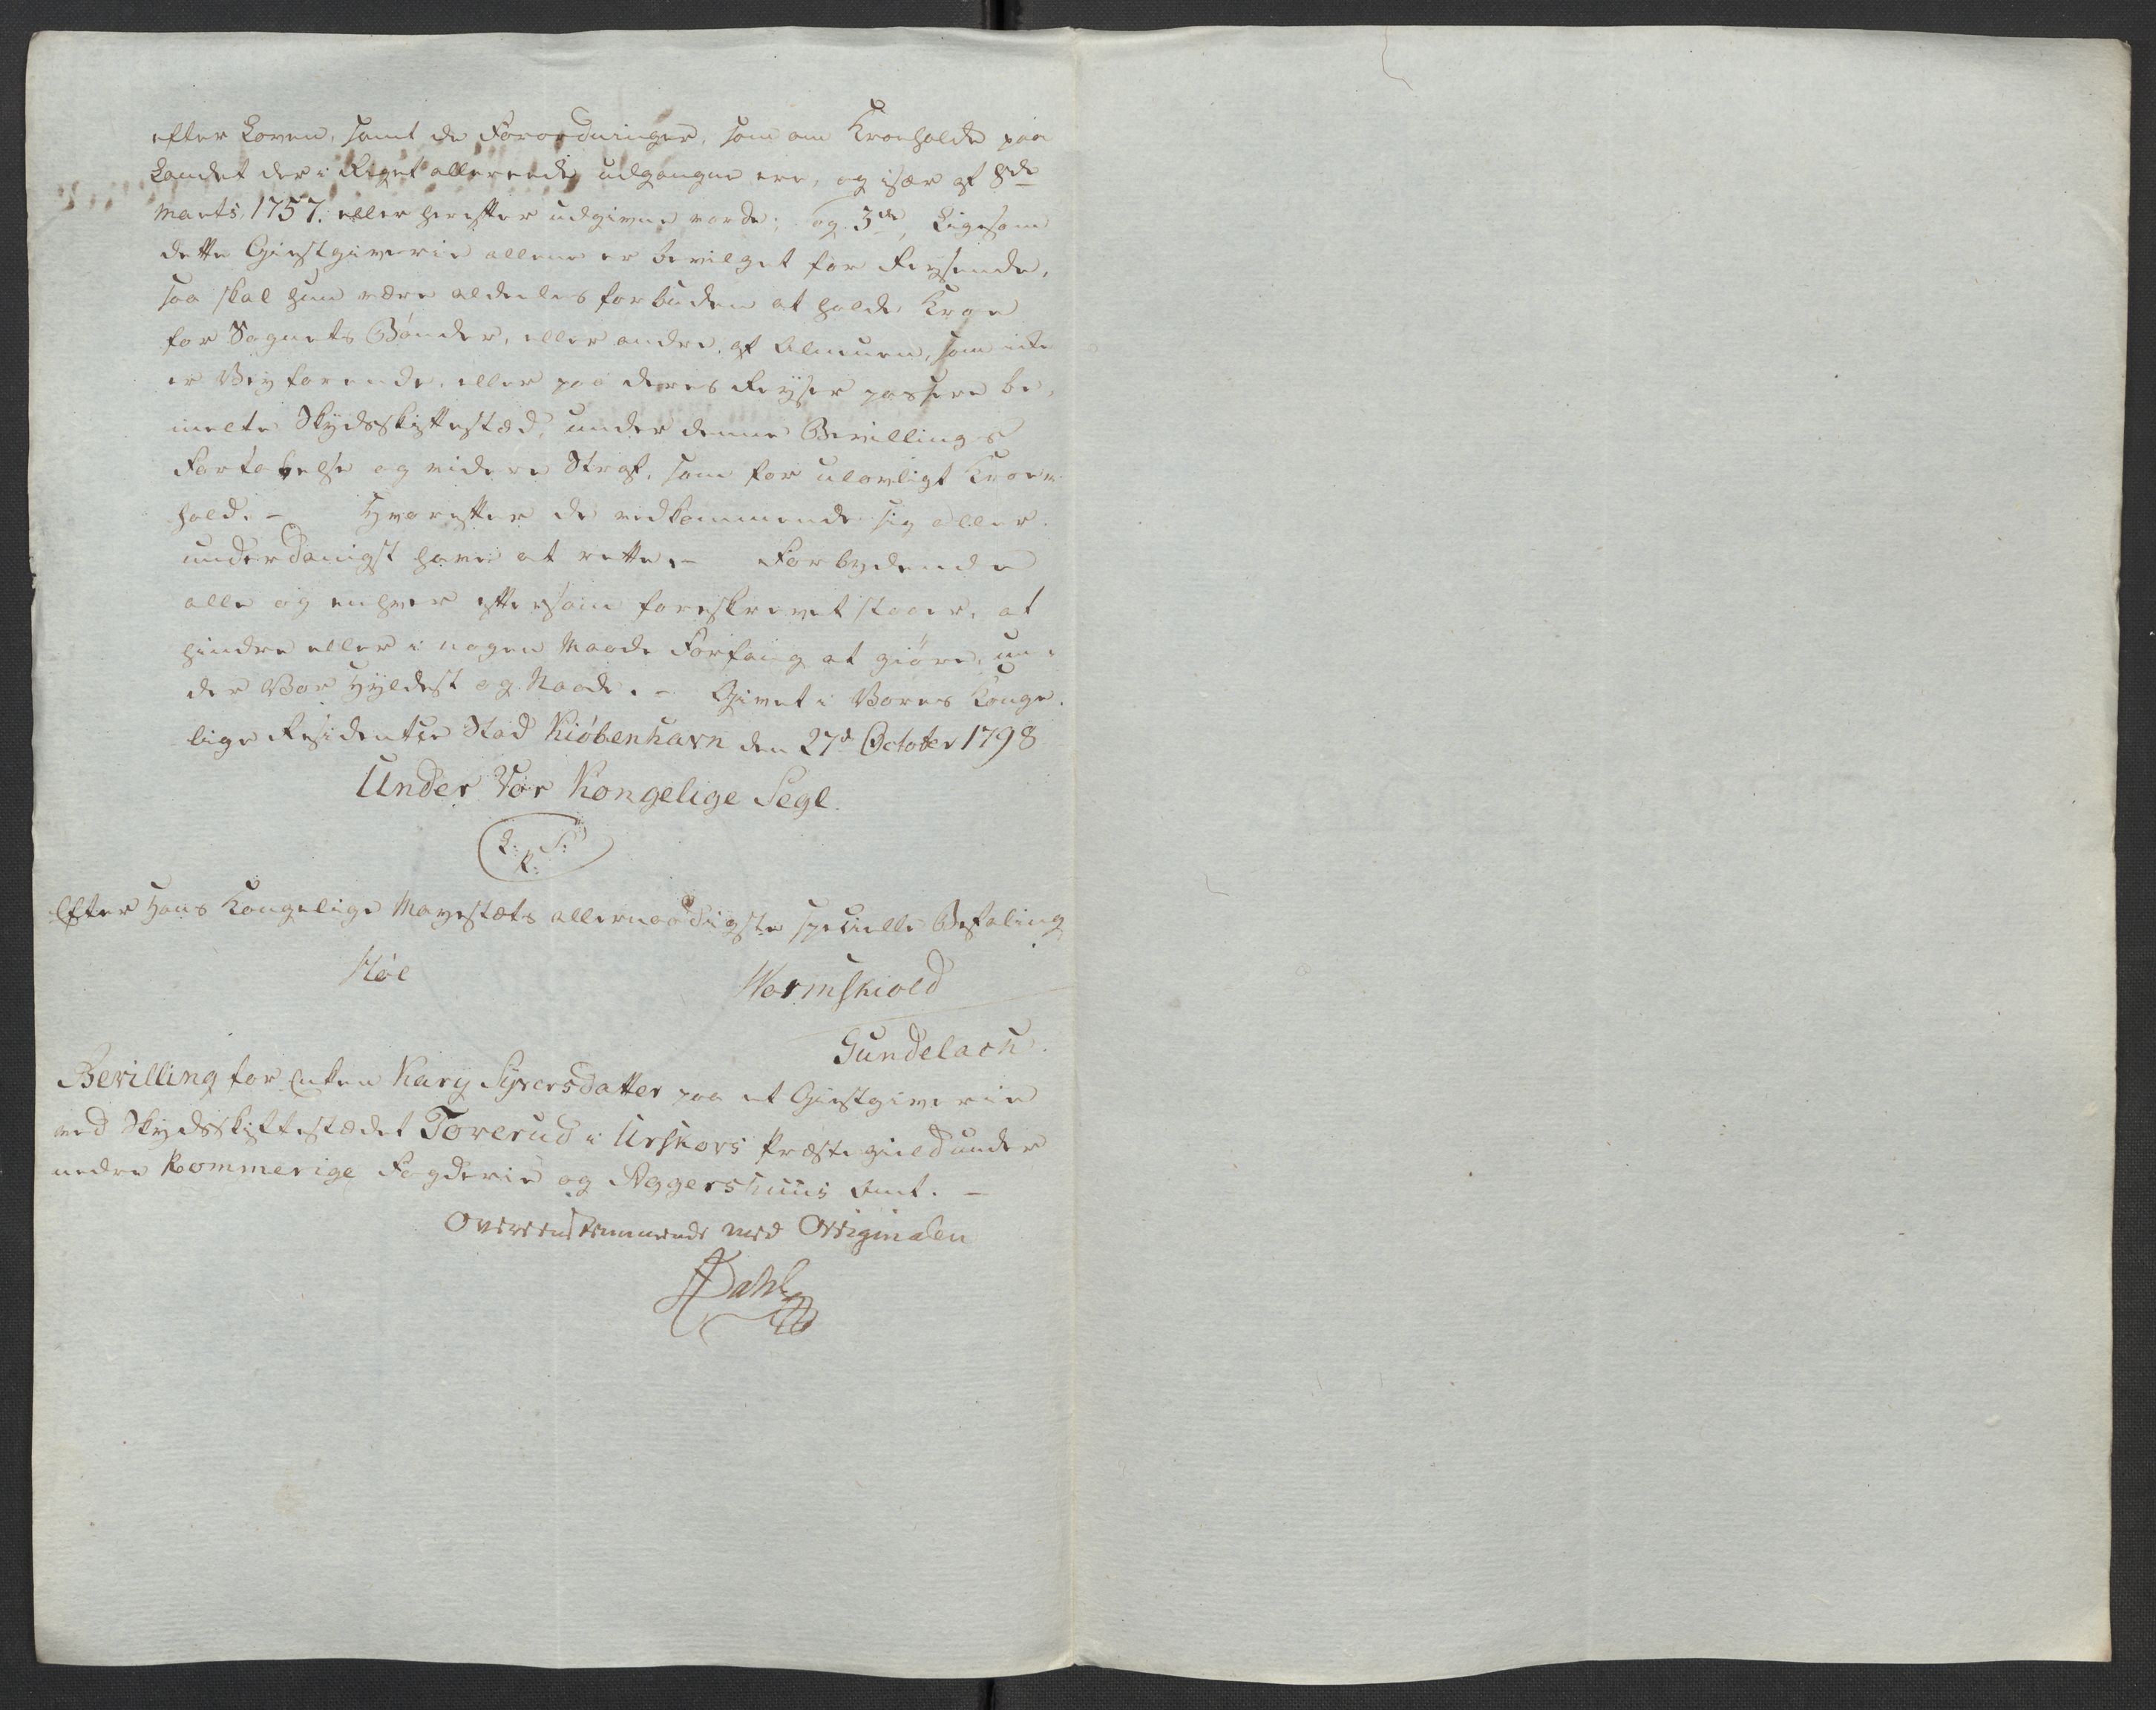 efter Loven, samt de Forordninger, som om Kroeholde paa
Landet der i Riget allereede udgangne ere, og især af 8de
Marts 1757. eller herefter udgivne vorde; og 3de, Ligesom
dette Giestgiverie allene er bevilget for Reysende,
saa skal hun være aldeeles forbuden at holde Kroe
for Sognets Bønder, eller andre af Almuen, som icke
er Veyfarende, eller paa deres Reyser passere be„
melte Skydsskiftestæd, under denne Bevillings
Fortabelse og videre Straf, som for ulovligt Kroe„
hold. – Hvorefter de vedkommende sig aller„
underdanigst have at rette. – Forbydende
alle og enhver eftersom foreskrevet staaer, at
hindre eller i nogen Maade Forfang at giøre, un„
der Vor Hyldest og Naade. – Givet i Vores Konge„
lige Residentze Stad Kiøbenhavn den 27d October 1798
Under Vor Kongelige Segl.
L. S.
R.
Efter Hans Kongelige Mayestæts allernaadigste specielle Befaling
Wormskiold
Gundelach.
Bevilling for Enken Kary Syversdatter paa et Giestgiverie
ved Skydsskiftestædet Toverud i Urskovs Præstegield under
nedre Rommerige Fogderie og Aggershuus Amt. –
Overeensstemmende med Originalen
Dahl